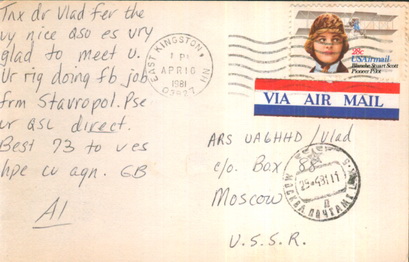 Tnx dr Vlad fer the
vy nice qso es vry
glad to meet u.
Ur rig doing fb job
frm Stavropol. Pse
ur qsl direct.
Best 73 to u es
hpe cu agn. GB
Al
EAST KINGSTON, NH
PM
APR 10
1981
03827
28c
USAirmail
Blanche Stuart Scott
Pioneer Pilot
VIA AIR MAIL
ARS UA6HHD/Vlad
c/o. Box 88
Moscow
U.S.S.R.
МОСКВА ПОЧТАМТ